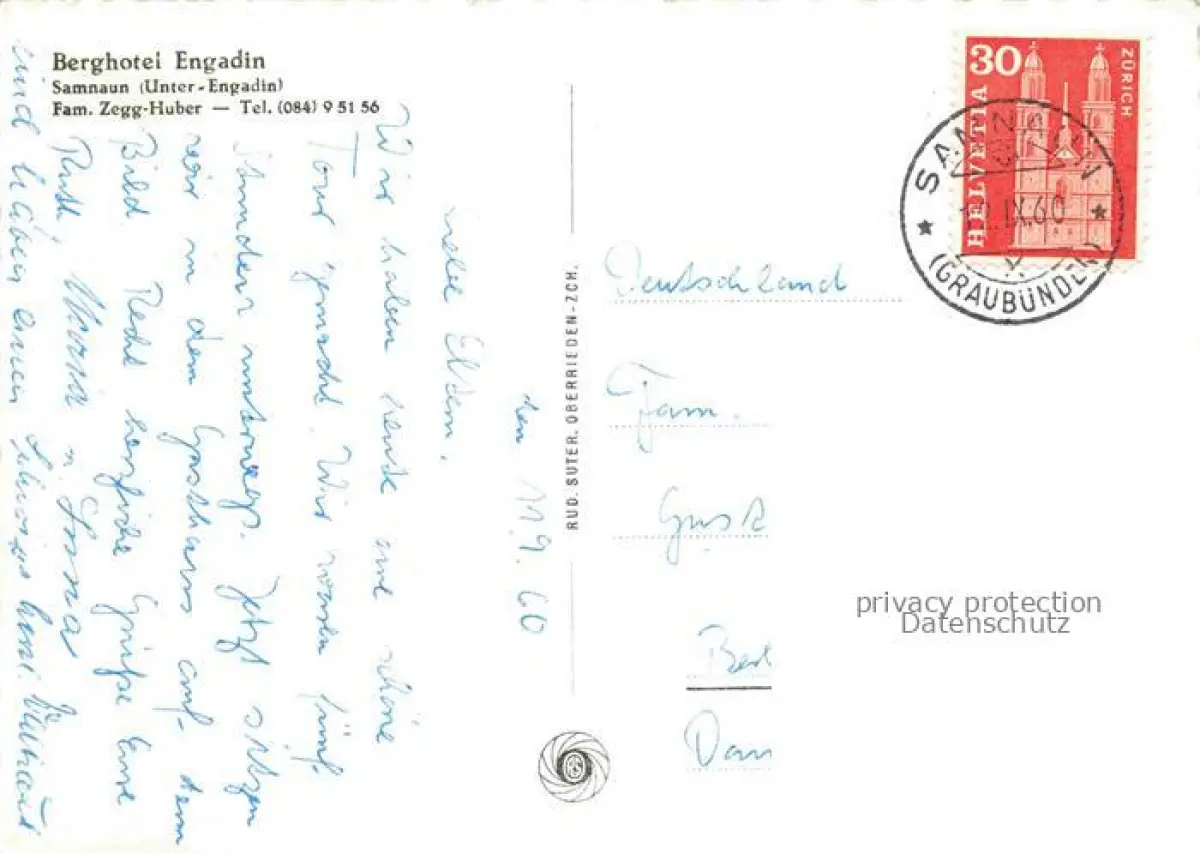 Berghotel Engadin
Samnaun (Unter-Engadin)
Fam. Zegg-Huber — Tel. (084) 9 51 56
den 11.9.60
Eltern.
Wir haben heute eine schöne
Tour gemacht. Wir waren fünf
Stunden unterwegs. Jetzt sitzen
wir in dem Gasthaus auf dem
Bild. Recht herzliche Grüße Eure
Ruth,
und lieben einen
RUD. SUTER, OBERRIEDEN-ZCH.
30
HELVETIA
ZÜRICH
SAMNAUN
IX.60
(GRAUBÜNDEN)
Deutschland
Fam.
Gust
Berl
Dam
privacy protection
Datenschutz